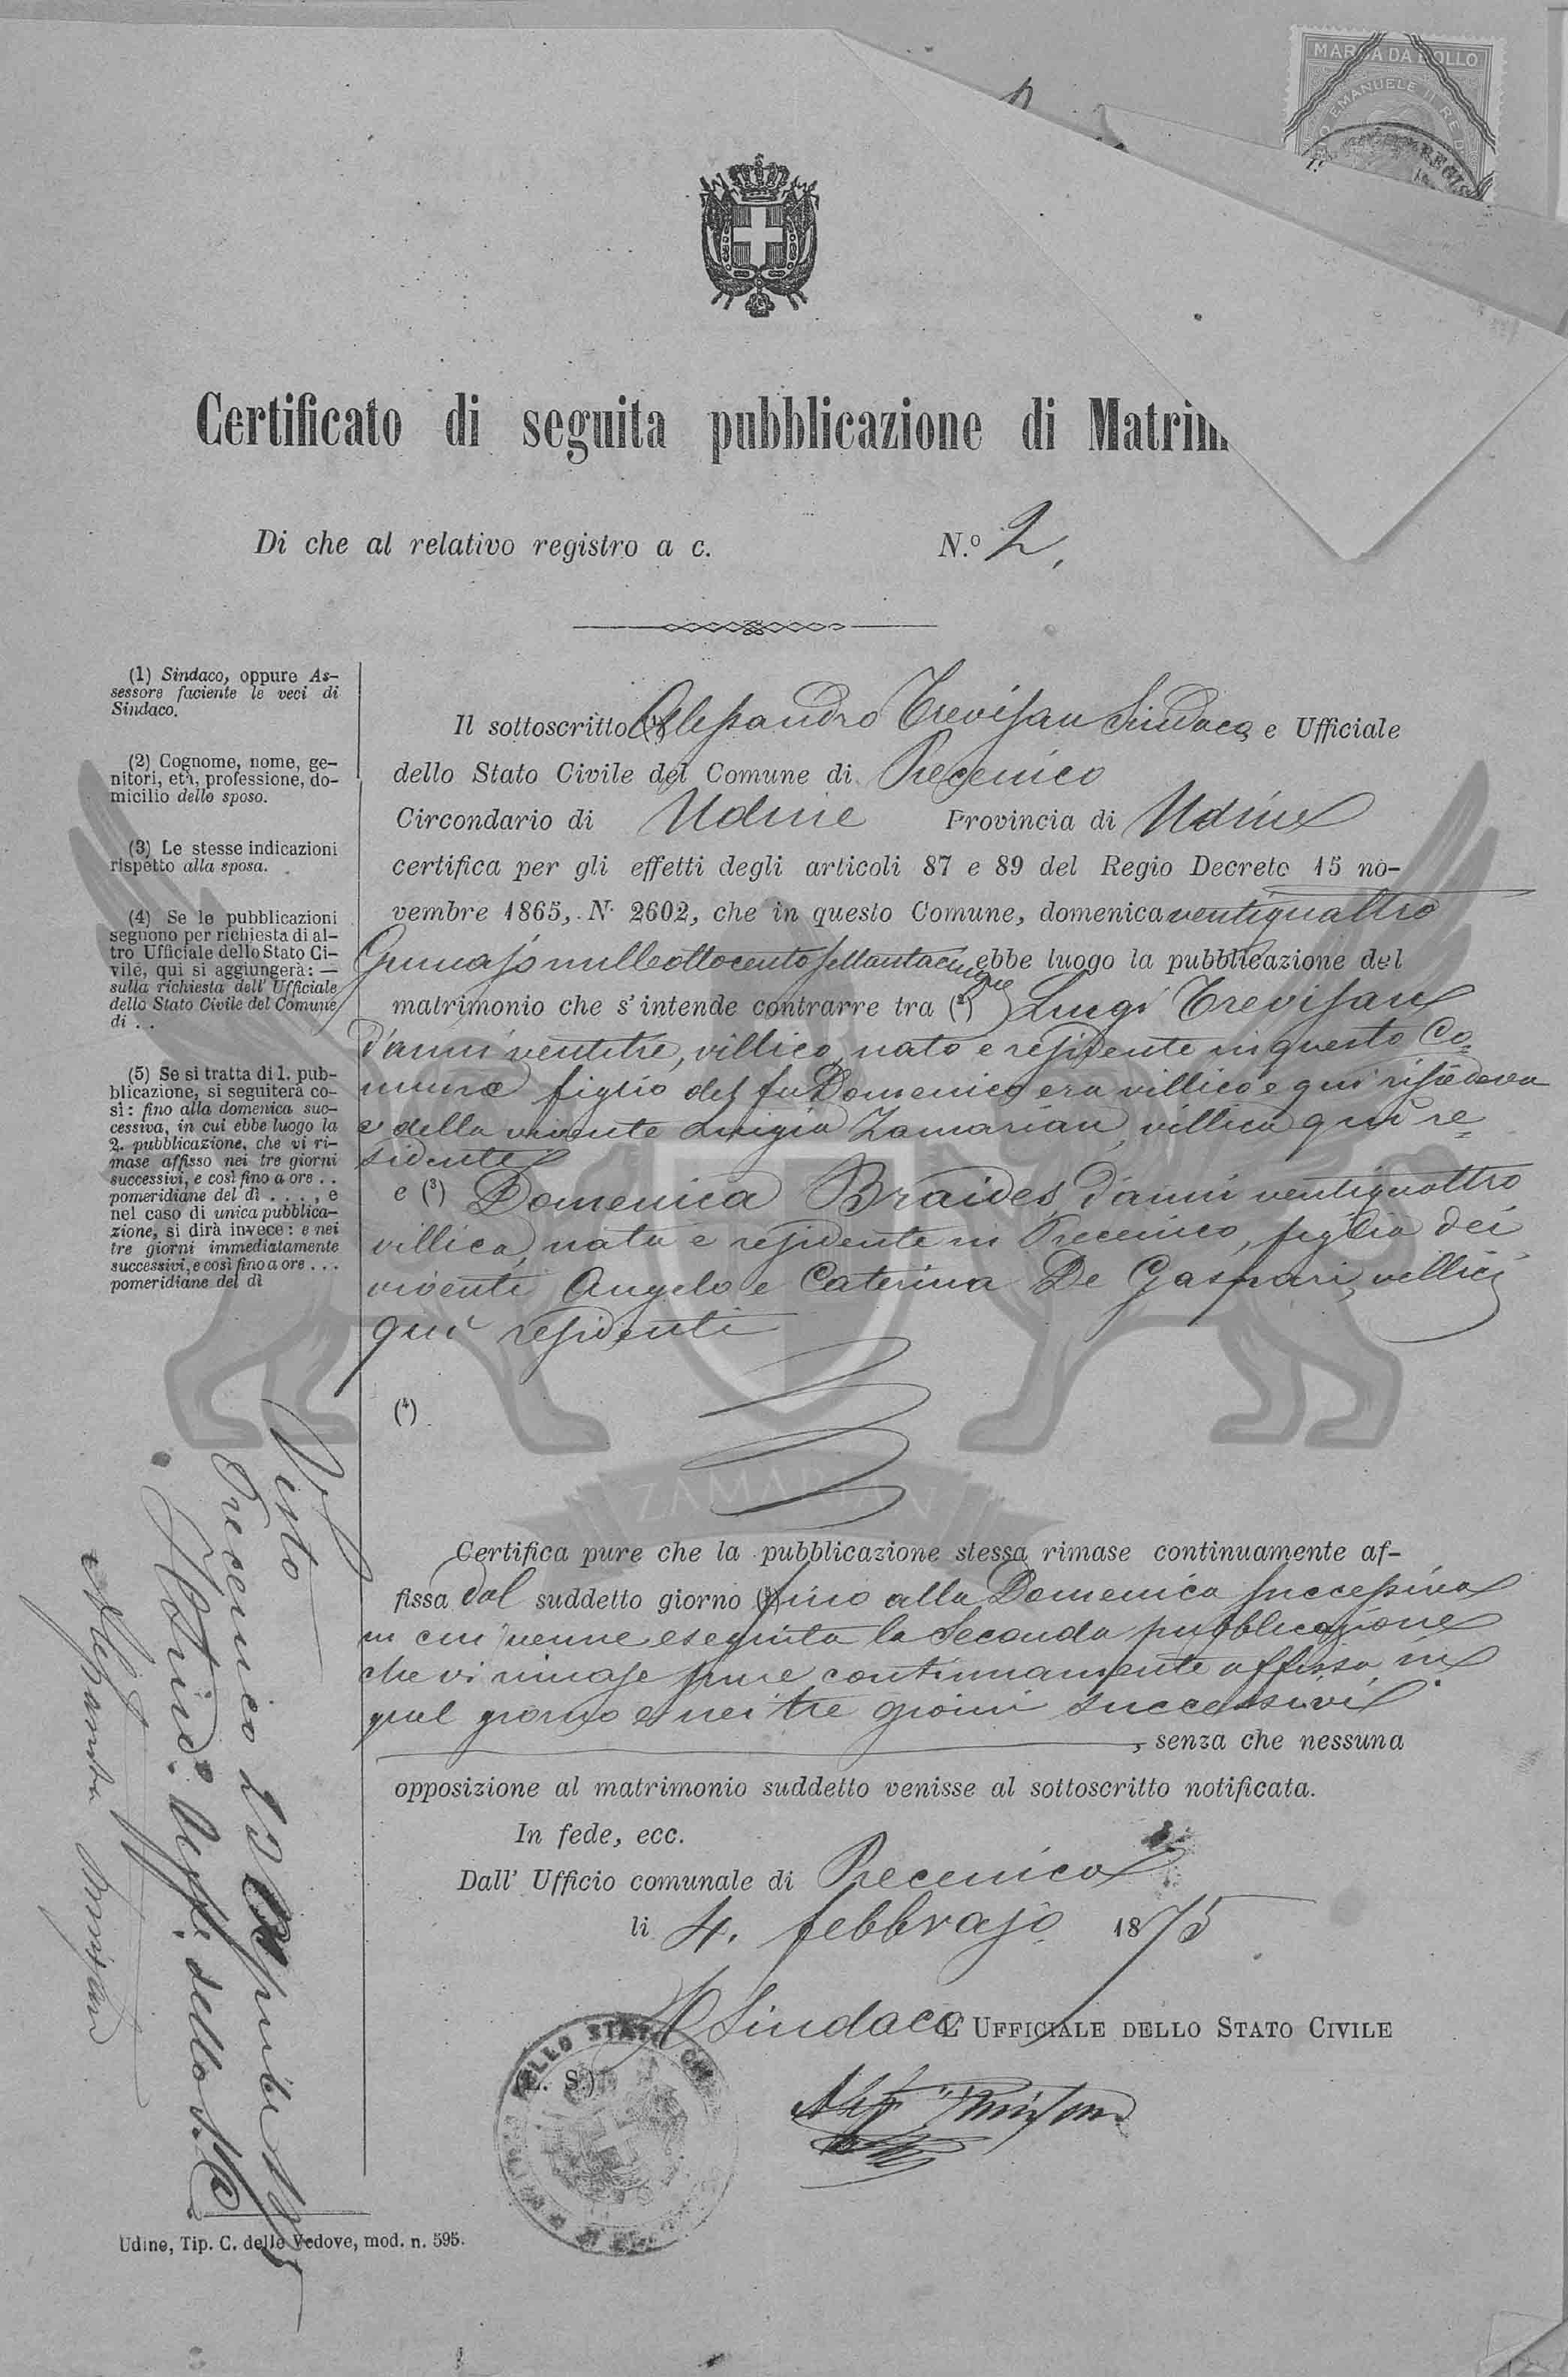 MARCA DA BOLLO
EMANUELE II RE D
Certificato di seguita pubblicazione di Matrim
Di che al relativo registro a c. N.º 2,
(1) Sindaco, oppure As-
sessore faciente le veci di
Sindaco.
(2) Cognome, nome, ge-
nitori, età, professione, do-
micilio dello sposo.
(3) Le stesse indicazioni
rispetto alla sposa.
(4) Se le pubblicazioni
seguono per richiesta di al-
tro Ufficiale dello Stato Ci-
vile, qui si aggiungerà: —
sulla richiesta dell' Ufficiale
dello Stato Civile del Comune
di . .
(5) Se si tratta di 1. pub-
blicazione, si seguiterà co-
sì: fino alla domenica suc-
cessiva, in cui ebbe luogo la
2. pubblicazione, che vi ri-
mase affisso nei tre giorni
successivi, e così fino a ore . .
pomeridiane del dì . . . . , e
nel caso di unica pubblica-
zione, si dirà invece: e nei
tre giorni immediatamente
successivi, e così fino a ore . . .
pomeridiane del dì
Il sottoscritto (1) Alessandro Trevisan Sindaco e Ufficiale
dello Stato Civile del Comune di Precenico
Circondario di Udine Provincia di Udine
certifica per gli effetti degli articoli 87 e 89 del Regio Decreto 15 no-
vembre 1865, N. 2602, che in questo Comune, domenica ventiquattro
Gennajo mille ottocento settantacinque ebbe luogo la pubblicazione del
matrimonio che s' intende contrarre tra (2) Luigi Trevisan
d'anni ventitre, villico, nato e residente in questo Co-
mune figlio del fu Domenico era villico e qui risiedeva
e della vivente Luigia Zamarian, villica qui re=
sidente
e (3) Domenica Braides, d'anni ventiquattro
villica, nata e residente in Precenico, figlia dei
viventi Angelo e Caterina De Gaspari, villici
qui residenti
(4)
ZAMARIAN
Certifica pure che la pubblicazione stessa rimase continuamente af-
fissa dal suddetto giorno (5) fino alla Domenica successiva
in cui venne eseguita la Seconda pubblicazione
che vi rimase pure continuamente affissa in
quel giorno e nei tre giorni successivi
, senza che nessuna
opposizione al matrimonio suddetto venisse al sottoscritto notificata.
In fede, ecc.
Dall' Ufficio comunale di Precenico
li 4. febbrajo 1875
Il Sindaco L' UFFICIALE DELLO STATO CIVILE
(L. S.)
Visto
Precenico
Alessandro Trevisan
Udine, Tip. C. delle Vedove, mod. n. 595.